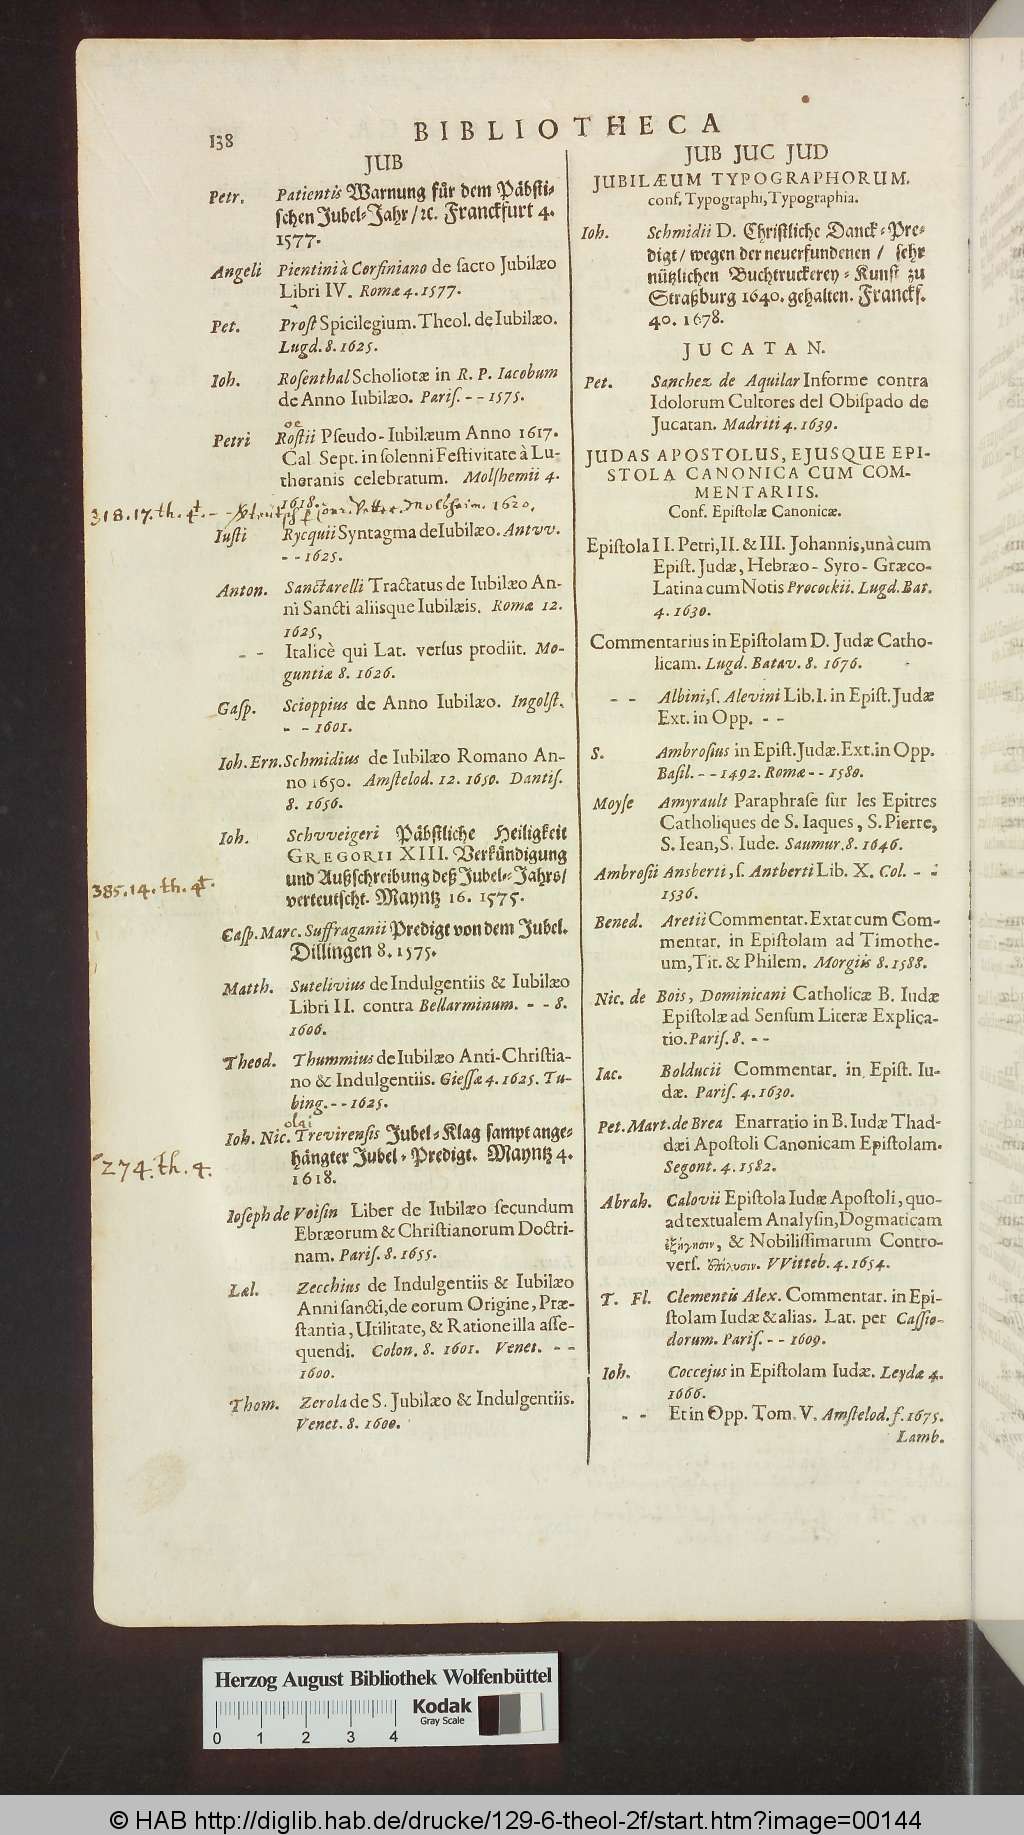 138
BIBLIOTHECA
JUB
Petr. Patientis Warnung für dem Päbsti-
schen Jubel-Jahr/ ꝛc. Franckfurt 4.
1577.
Angeli Pientini à Corsiniano de sacro Jubilæo
Libri IV. Romæ 4. 1577.
Pet. Prost Spicilegium. Theol. de Iubilæo.
Lugd. 8. 1625.
Ioh. Rosenthal Scholiotæ in R. P. Iacobum
de Anno Iubilæo. Paris. - - 1575.
oe
Petri Rostii Pseudo-Iubilæum Anno 1617.
Cal Sept. in solenni Festivitate à Lu-
theranis celebratum. Molshemii 4.
1618.
318.17.th.4t. - - Molsheim. 1620.
Iusti Rycquii Syntagma de Iubilæo. Antvv.
- - 1625.
Anton. Sanctarelli Tractatus de Iubilæo An-
ni Sancti aliisque Iubilæis. Romæ 12.
1625,
- - Italicè qui Lat. versus prodiit. Mo-
guntiæ 8. 1626.
Gasp. Scioppius de Anno Iubilæo. Ingolst.
- - 1601.
Ioh. Ern. Schmidius de Iubilæo Romano An-
no 1650. Amstelod. 12. 1650. Dantis.
8. 1656.
Ioh. Schvveigeri Päbstliche Heiligkeit
GREGORII XIII. Verkündigung
und Außschreibung deß Jubel-Jahrs/
385.14.th.4t.
verteutscht. Mayntz 16. 1575.
Casp. Marc. Suffraganii Predigt von dem Jubel.
Dillingen 8. 1575.
Matth. Sutelivius de Indulgentiis & Iubilæo
Libri II. contra Bellarminum. - - 8.
1606.
Theod. Thummius de Iubilæo Anti-Christia-
no & Indulgentiis. Giessæ 4. 1625. Tu-
bing. - - 1625.
olai
Ioh. Nic. Trevirensis Jubel-Klag sampt ange-
hängter Jubel-Predigt. Mayntz 4.
274.th.4.
1618.
Ioseph de Voisin Liber de Iubilæo secundum
Ebræorum & Christianorum Doctri-
nam. Paris. 8. 1655.
Læl. Zecchius de Indulgentiis & Iubilæo
Anni sancti, de eorum Origine, Præ-
stantia, Utilitate, & Ratione illa asse-
quendi. Colon. 8. 1601. Venet. - -
1600.
Thom. Zerola de S. Jubilæo & Indulgentiis.
Venet. 8. 1600.
JUB JUC JUD
JUBILÆUM TYPOGRAPHORUM.
conf. Typographi, Typographia.
Ioh. Schmidii D. Christliche Danck-Pre-
digt/ wegen der neuerfundenen/ sehr
nützlichen Buchtruckerey-Kunst zu
Straßburg 1640. gehalten. Francks.
40. 1678.
JUCATAN.
Pet. Sanchez de Aquilar Informe contra
Idolorum Cultores del Obispado de
Jucatan. Madriti 4. 1639.
JUDAS APOSTOLUS, EJUSQUE EPI-
STOLA CANONICA CUM COM-
MENTARIIS.
Conf. Epistolæ Canonicæ.
Epistola II. Petri, II. & III. Johannis, unà cum
Epist. Judæ, Hebræo-Syro-Græco-
Latina cum Notis Procockii. Lugd. Bat.
4. 1630.
Commentarius in Epistolam D. Judæ Catho-
licam. Lugd. Batav. 8. 1676.
- - Albini, s. Alevini Lib. I. in Epist. Judæ
Ext. in Opp. - -
S. Ambrosius in Epist. Judæ. Ext. in Opp.
Basil. - - 1492. Romæ - - 1580.
Moyse Amyrault Paraphrase sur les Epitres
Catholiques de S. Iaques, S. Pierre,
S. Iean, S. Iude. Saumur. 8. 1646.
Ambrosii Ansberti, s. Antberti Lib. X. Col. - -
1536.
Bened. Aretii Commentar. Extat cum Com-
mentar. in Epistolam ad Timothe-
um, Tit. & Philem. Morgiis 8. 1588.
Nic. de Bois, Dominicani Catholicæ B. Iudæ
Epistolæ ad Sensum Literæ Explica-
tio. Paris. 8. - -
Iac. Bolducii Commentar. in Epist. Iu-
dæ. Paris. 4. 1630.
Pet. Mart. de Brea Enarratio in B. Iudæ Thad-
dæi Apostoli Canonicam Epistolam.
Segont. 4. 1582.
Abrah. Calovii Epistola Iudæ Apostoli, quo-
ad textualem Analysin, Dogmaticam
ἐξήγησιν, & Nobilissimarum Contro-
vers. ἐπίλυσιν. VVitteb. 4. 1654.
T. Fl. Clementis Alex. Commentar. in Epi-
stolam Iudæ & alias. Lat. per Cassio-
dorum. Paris. - - 1609.
Ioh. Coccejus in Epistolam Iudæ. Leydæ 4.
1666.
- - Et in Opp. Tom. V. Amstelod. f. 1675.
Lamb.
Herzog August Bibliothek Wolfenbüttel
Kodak
Gray Scale
0 1 2 3 4
© HAB http://diglib.hab.de/drucke/129-6-theol-2f/start.htm?image=00144